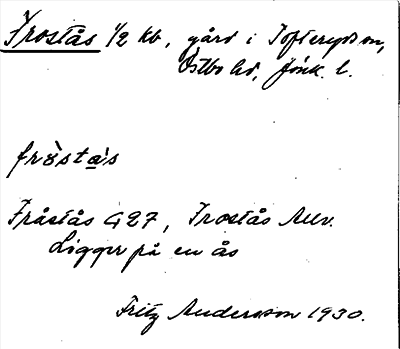 Frostås 1/2 kb, gård i Tofteryds sn,
Östbo hd, Jönk. l.
fròsta`s
Fråstås G 27, Frostås Allv.
Ligger på en ås
Fritz Andersson 1930.